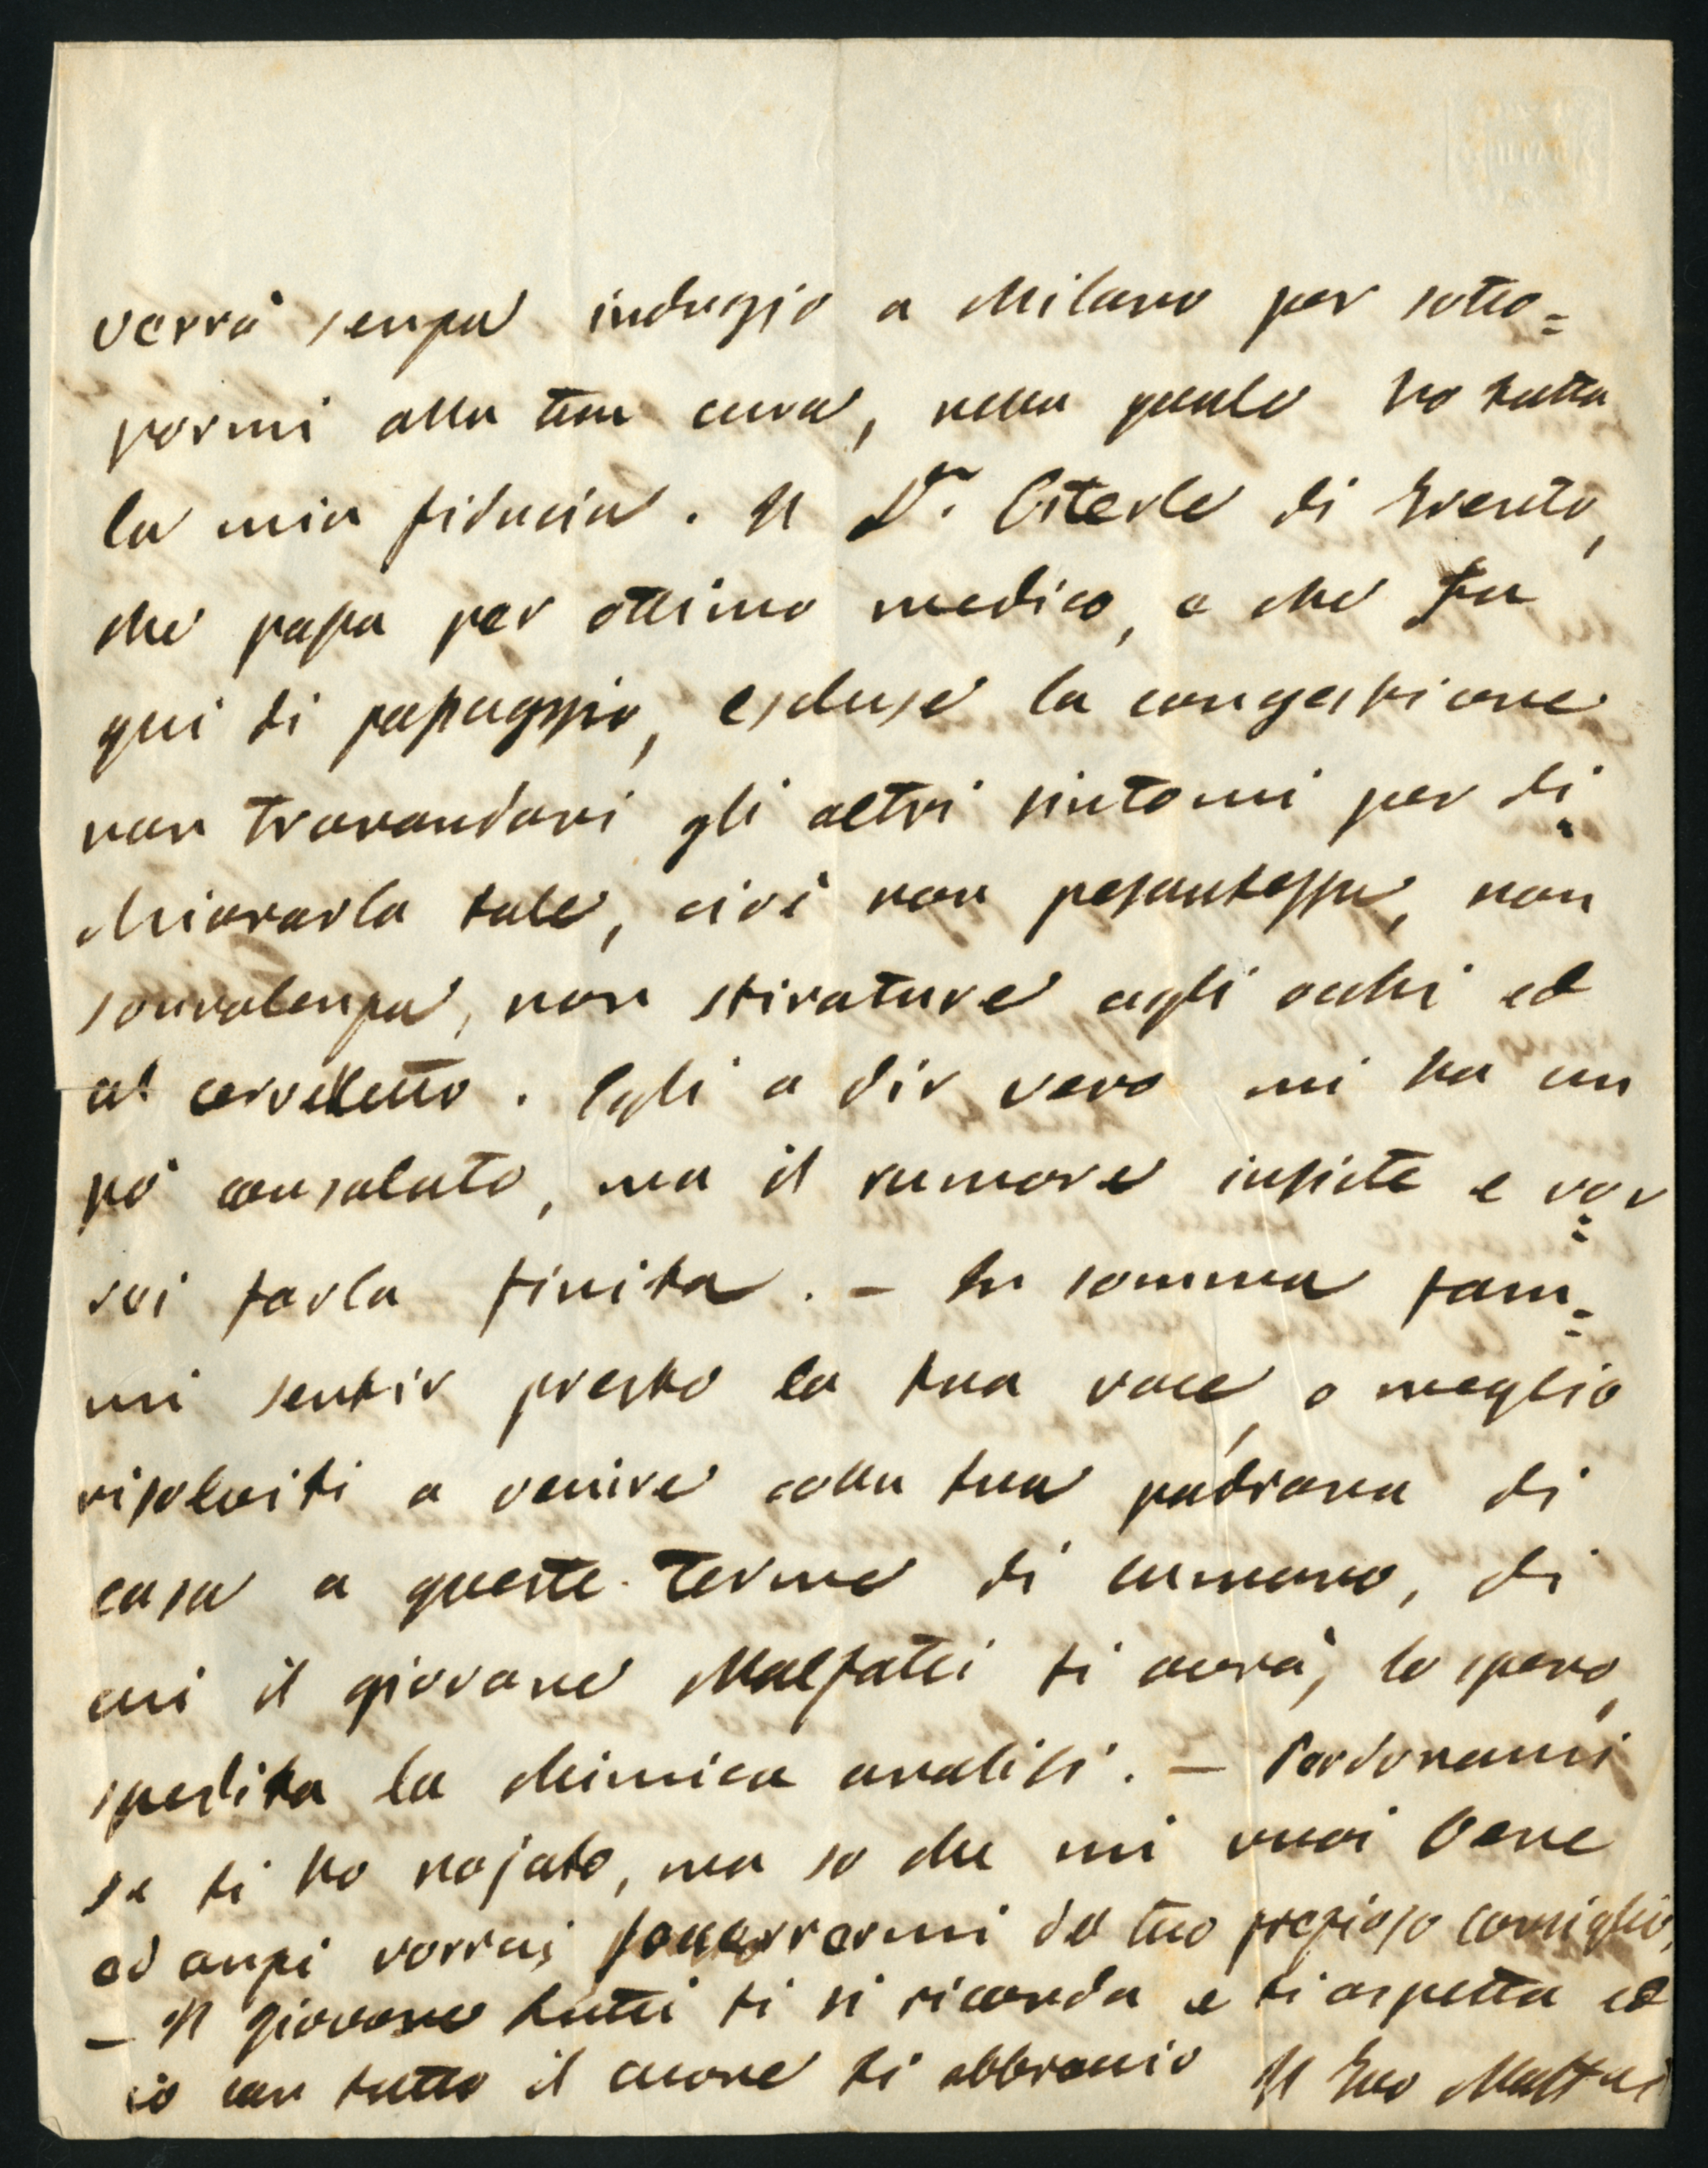 verrò senza indugio a Milano per sotto=
pormi alla tua cura, nella quale ho tutta
la mia fiducia. Il Dr. Esterle di Trento,
che passa per ottimo medico, e che fu
qui di passaggio, escluse la congestione
non trovandovi gli altri sintomi per di=
chiararla tale, cioè non pesantezza, non
sonnolenza, non stirature agli occhi ed
al cervelletto. Egli a dir vero mi ha un
pò consolato, ma il rumore insiste e vor=
rei farla finita. — In somma fam=
mi sentir presto la tua voce, o meglio
risolviti a venire colla tua padrona di
casa a queste Terme di Comano, di
cui il giovane Malfatti ti avrà, lo spero,
spedita la chimica analisi. — Perdonami
se ti ho nojato, ma so che mi vuoi bene
ed anzi vorrai soccorrermi del tuo prezioso consiglio.
— Il giovane tutti ti si ricorda e ti aspetta ed
io con tutto il cuore ti abbraccio Il Tuo